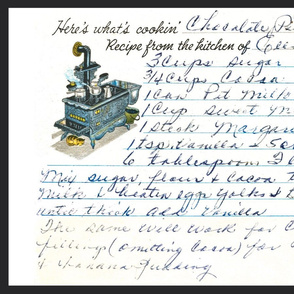 Here's what's cookin' Chocolate
Recipe from the kitchen of
3 Cups sugar
3/4 Cups Cocoa
1 Can Pet Milk
1 Cup sweet M
1 Stick Margar
1 tsp Vanilla &
6 tablespoons
Mix sugar, flour & Cocoa
Milk & beaten egg yolks &
until thick add Vanilla
The same will work for C
filling (omitting Cocoa) for
& banana Pudding